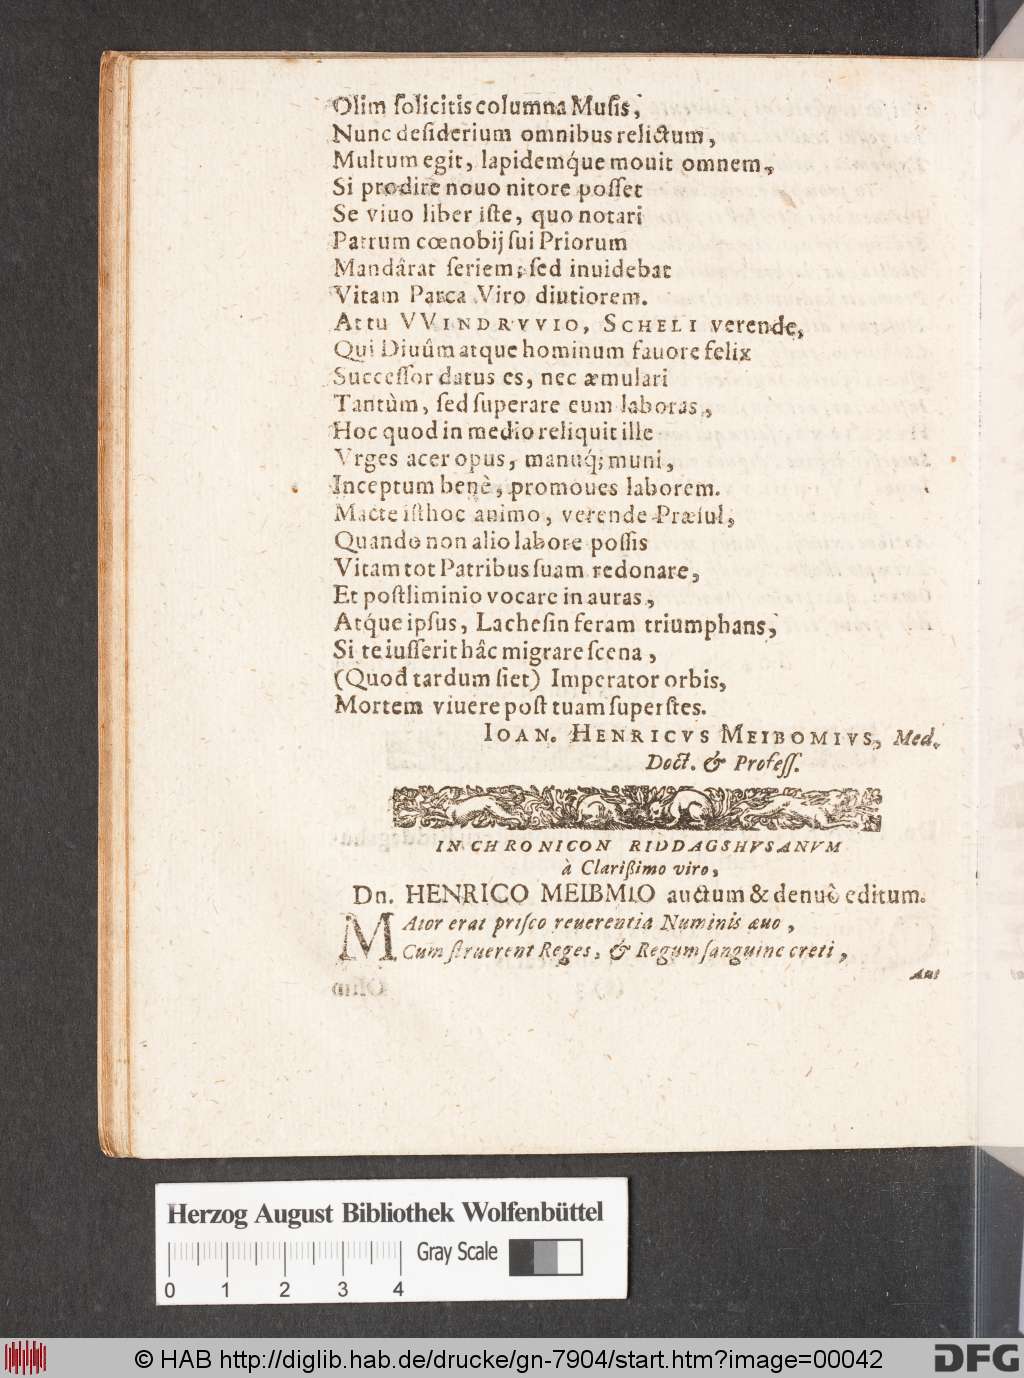 Olim ſolicitis columna Muſis,
Nunc deſiderium omnibus relictum,
Multum egit, lapidemq́ue mouit omnem,
Si prodire nouo nitore poſſet
Se viuo liber iſte, quo notari
Patrum cœnobij ſui Priorum
Mandârat ſeriem; ſed inuidebat
Vitam Parca Viro diutiorem.
At tu VVINDRVVIO, SCHELI verende,
Qui Diuûm atque hominum fauore felix
Succeſſor datus es, nec æmulari
Tantùm, ſed ſuperare eum laboras,
Hoc quod in medio reliquit ille
Vrges acer opus, manuq́; muni,
Inceptum benè, promoues laborem.
Macte iſthoc animo, verende Præſul,
Quando non alio labore poſſis
Vitam tot Patribus ſuam redonare,
Et poſtliminio vocare in auras,
Atq́ue ipſus, Lacheſin feram triumphans,
Si te iuſſerit hâc migrare ſcena,
(Quod tardum ſiet) Imperator orbis,
Mortem viuere poſt tuam ſuperſtes.
IOAN. HENRICVS MEIBOMIVS, Med.
Doct. & Profeſſ.
IN CHRONICON RIDDAGSHVSANVM
à Clarißimo viro,
Dn. HENRICO MEIBMIO auctum & denuò editum.
MAior erat priſco reuerentia Numinis æuo,
Cum ſtruerent Reges, & Regum ſanguine creti,
Aut
Herzog August Bibliothek Wolfenbüttel
Gray Scale
0 1 2 3 4
© HAB http://diglib.hab.de/drucke/gn-7904/start.htm?image=00042
DFG